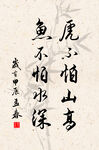 虎不怕山高
魚不怕水深
歲甲辰孟春